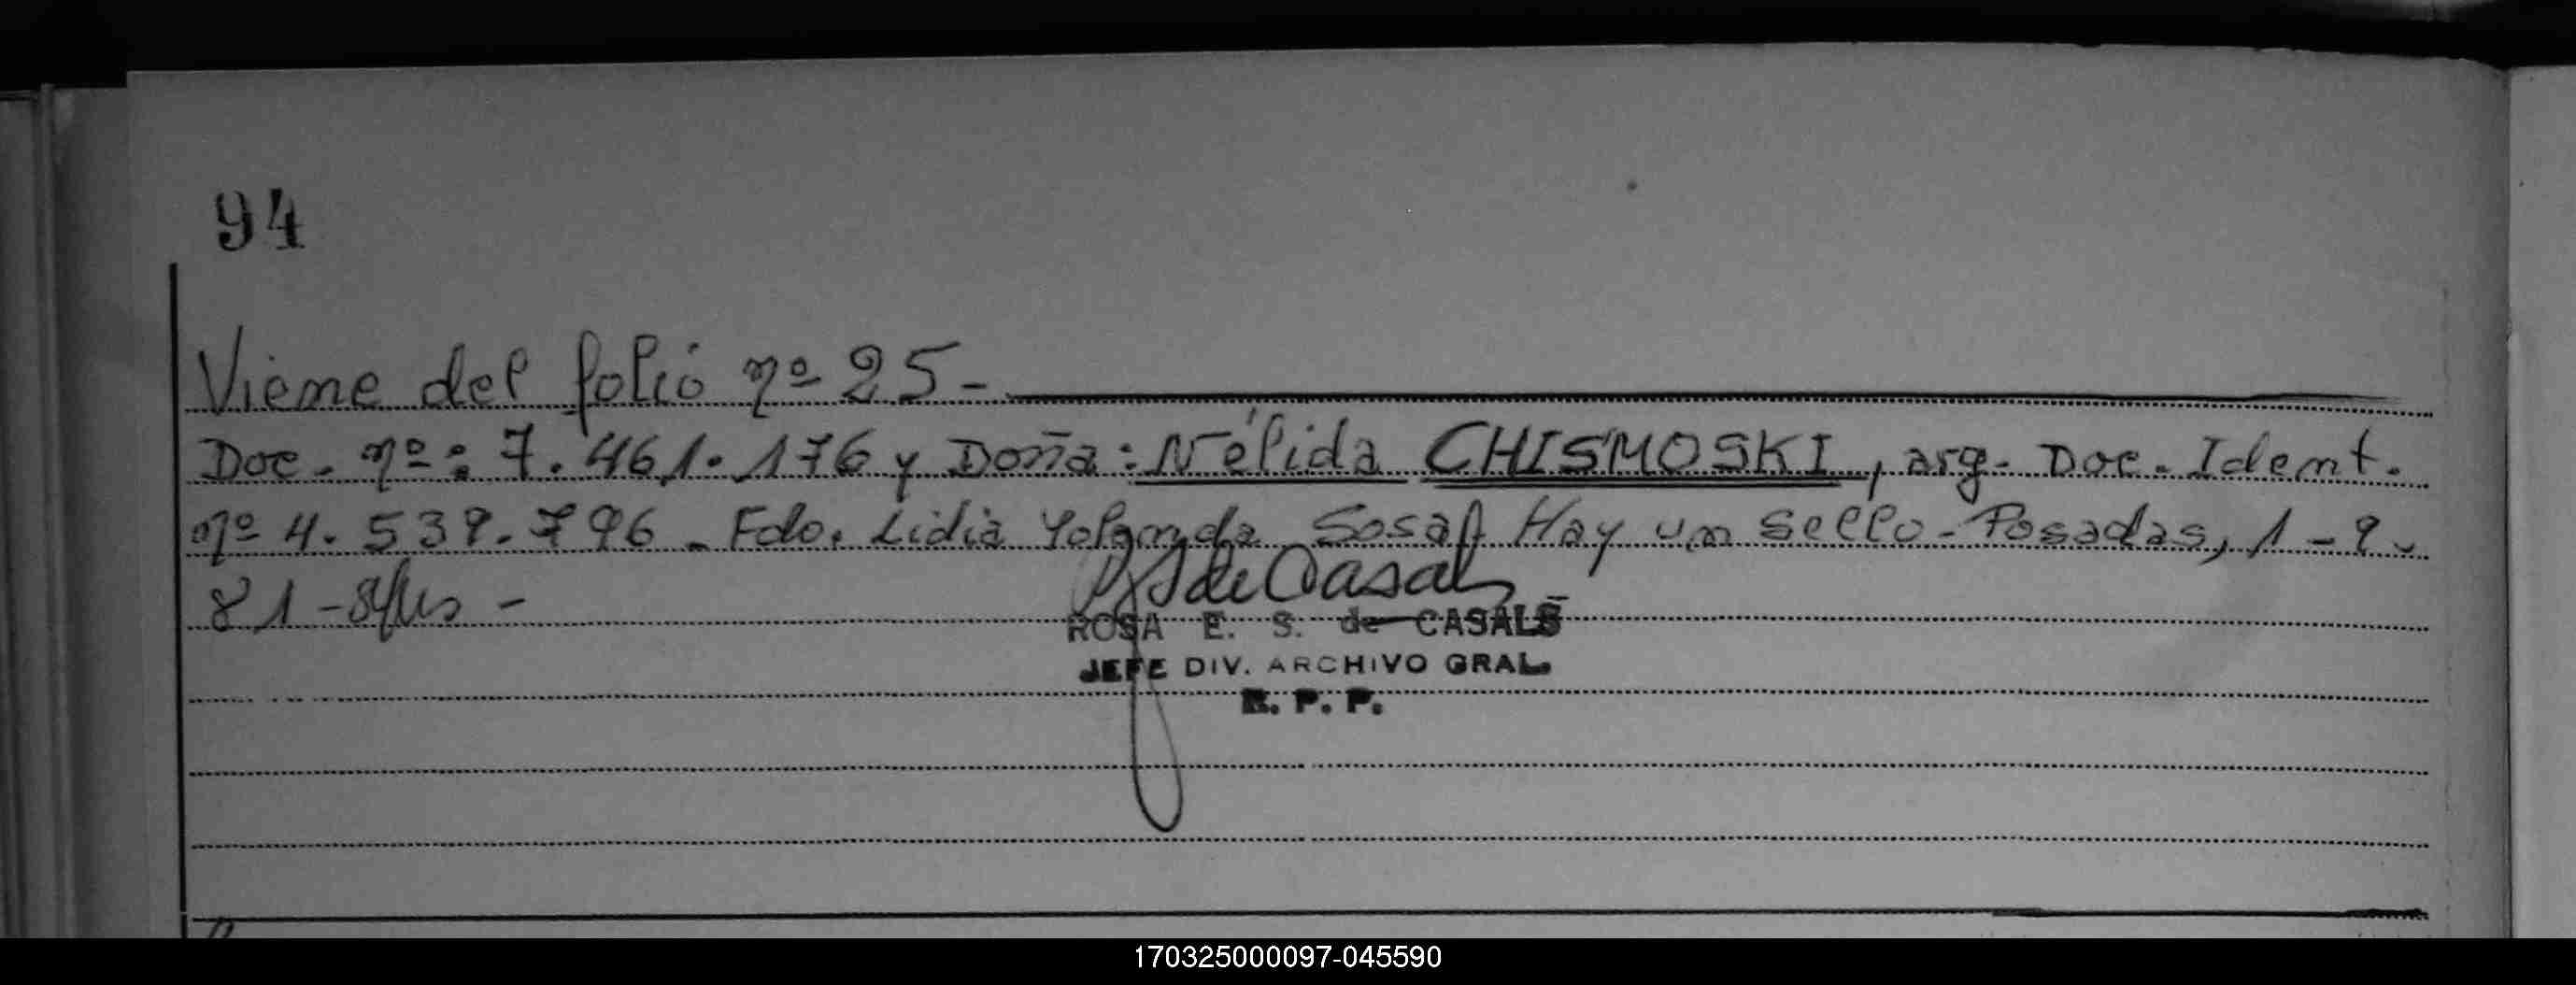 94
Viene del folio nº 25-
Doc. nº: 7.461.176 y Doña: Nélida CHISMOSKI, arg. Doc. Ident.
nº 4.539.796 - Fdo. Lidia Yolanda Sosa Hay un sello - Posadas, 1-9-
81-
de Casals
ROSA E. S. de CASALS
JEFE DIV. ARCHIVO GRAL.
R. P. P.
170325000097-045590